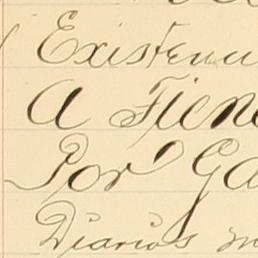 Existenci
A Fien
Por Ga
Diarios